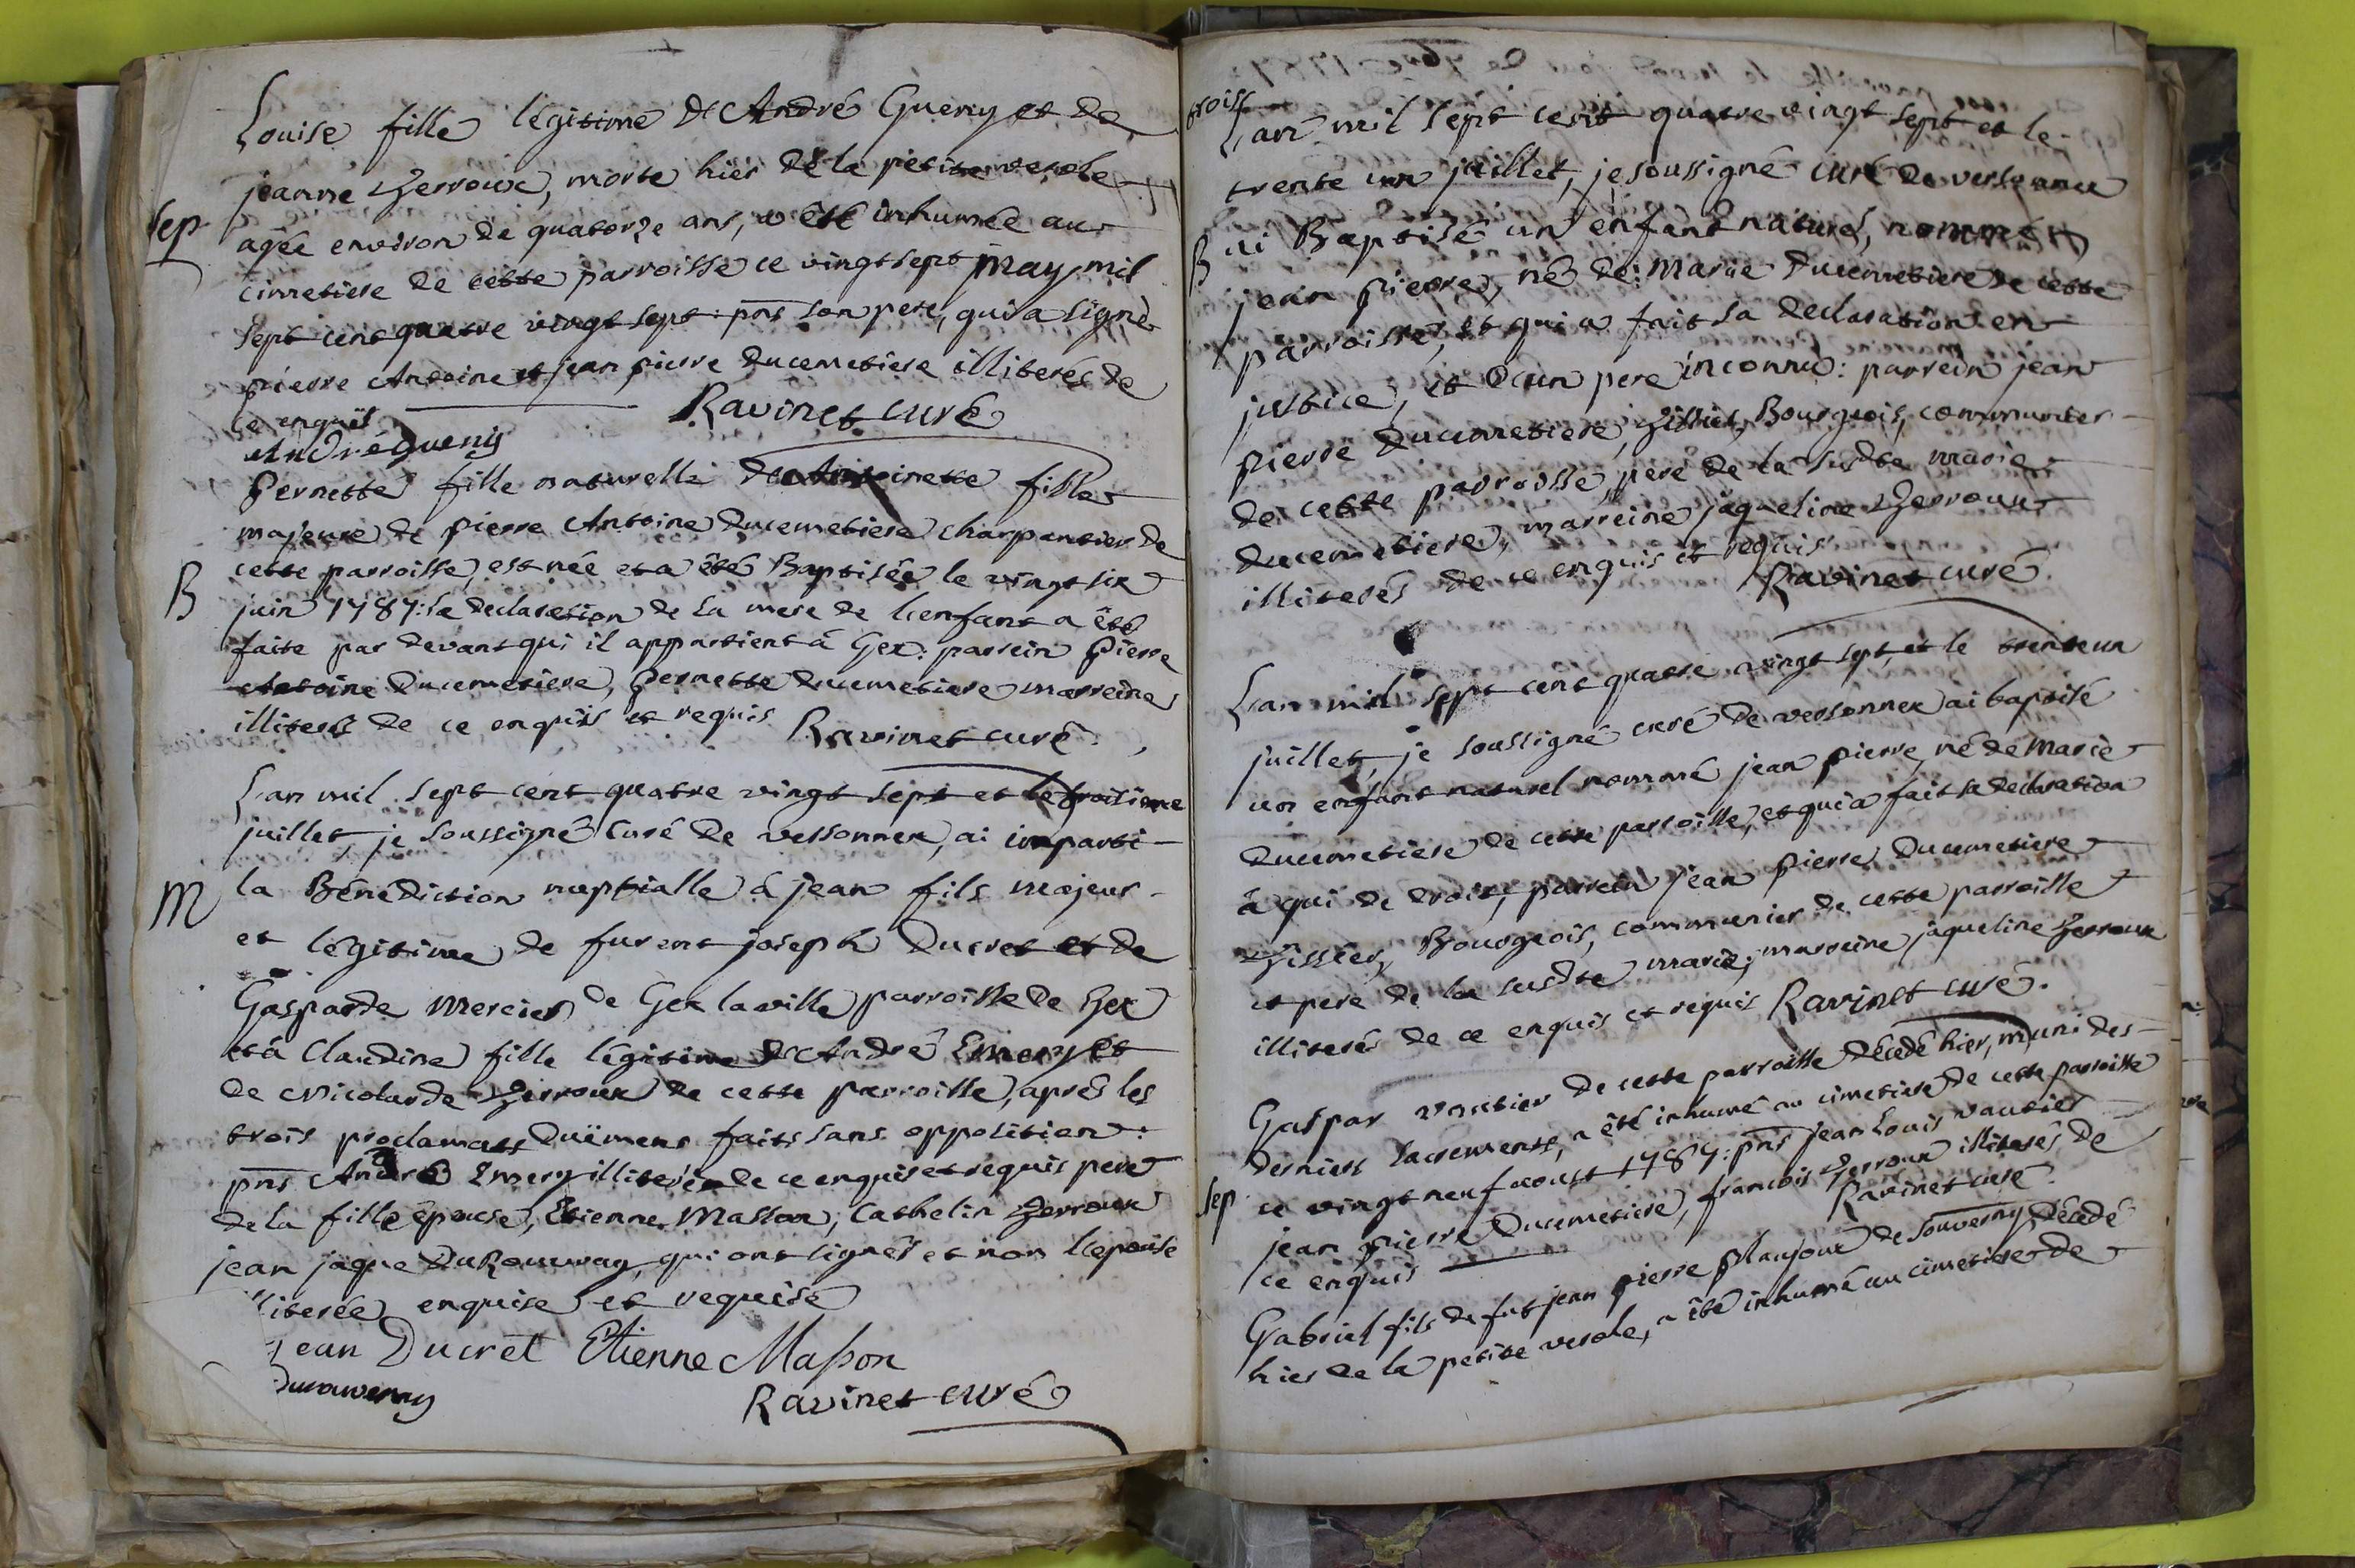 Louise fille légitime de André Gueny et de
jeanne Zerroux, morte hier de la petite verole
Sep
agée environ de quatorze ans, a été inhumée au
cimetiere de cette parroisse ce vingt sept may mil
sept cent quatre vingt sept: pnts son pere, qui a signé
pierre Antoine et jean pierre ducemetiere illiterés de
ce enquis Ravinet curé
André gueniy
Pernette fille naturelle de Antoinette fille
majeure de pierre Antoine ducemetiere charpentier de
cette parroisse, est née et a été Baptisée le vingt six
B
juin 1787: la declaration de la mere de l'enfant a été
faite par devant qui il appartient à Gex: parrein Pierre
Antoine ducemetiere, Pernette ducemetiere marreine
illiterés de ce enquis et requis Ravinet curé
L'an mil sept cent quatre vingt sept et le troisieme
juillet, je soussigné curé de versonnex, ai imparti
M
la Bénédiction nuptialle à jean fils majeur
et légitime de furent joseph Ducret et de
Gasparde mercier de Gex la ville parroisse de Gex
et à Claudine fille légitime de André Emery et
de Nicolarde Zerroux de cette parroisse, après les
trois proclamats duëment faits sans opposition:
pnts André Emery illiteré de ce enquis et requis pere
de la fille épouse, Etienne Masson, Cathelin Zerroux
jean jaque Du Rouveray, qui ont signés et non l'epouse
illiterée enquise et requise
jean Ducret Etienne Masson
Durouveray
Ravinet curé
L'an mil sept cent quatre vingt sept et le
trente un juillet, je soussigné curé de versonnex
B
ai Baptisé un enfant naturel, nommé
jean pierre, né de marie ducemetiere de cette
parroisse, et qui a fait sa declaration en
justice, et d'un pere inconnu: parrein jean
pierre ducemetiere, Bourgeois, communier
de cette parroisse pere de la susdte marie
ducemetiere, marreine jaqueline Zerroux
illiterés de ce enquis et requis
Ravinet curé.
L'an mil sept cent quatre vingt sept, et le trente un
juillet, je soussigné curé de versonnex ai baptisé
un enfant naturel nommé jean pierre, né de marie
ducemetiere de cette parroisse, et qui a fait sa declaration
à qui de droit, parrein jean pierre ducemetiere
Bourgeois, communier de cette parroisse
et pere de la susdte marie, marreine jaqueline Zerroux
illiterés de ce enquis et requis Ravinet curé.
Gaspar vautier de cette parroisse décédé hier, muni des
derniers sacrements, a été inhumé au cimetiere de cette parroisse
Sep
ce vingt neuf aoust 1787: pnts jean Louis vautier
jean pierre Ducemetiere, francois Zerroux illiterés de
ce enquis Ravinet curé.
Gabriel fils de fut jean pierre Planjoux de sauverny décédé
hier de la petite verole, a été inhumé au cimetiere de